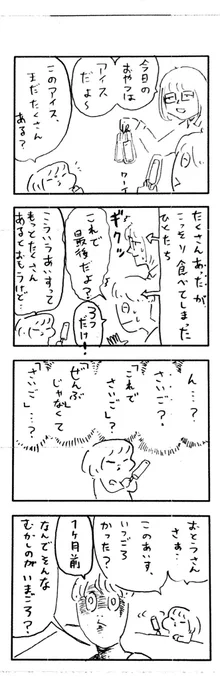 今日の
おやつは
アイスだよ〜
ワーイ
このアイス、
まだたくさん
ある？
たくさんあったが
こっそり食べてしまった
ひとたち
ギクッ
これで
最後だよ？
3つ
だけ！
こういうあいすって
もっとたくさん
あるとおもうけど…
ん…？
さいご？
「これで
さいご」？
「ぜんぶ」
じゃなくて
「さいご」…？
おとうさん
さぁ…
このあいす、
いつごろ
かった？
1ヶ月前
なんでそんな
むかしのがいまごろ？